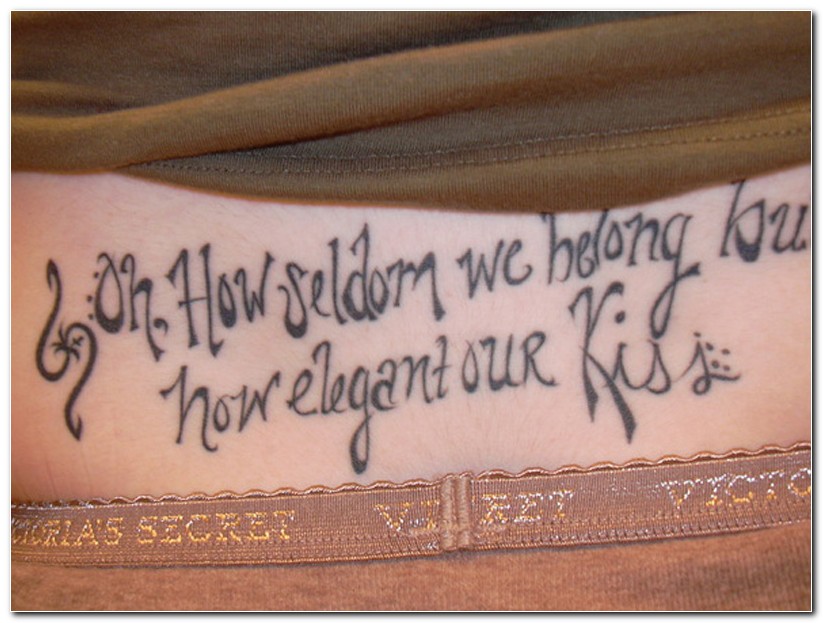 Oh, How seldom we belong bu
how elegant our Kiss
VICTORIA'S SECRET V RET VICTO